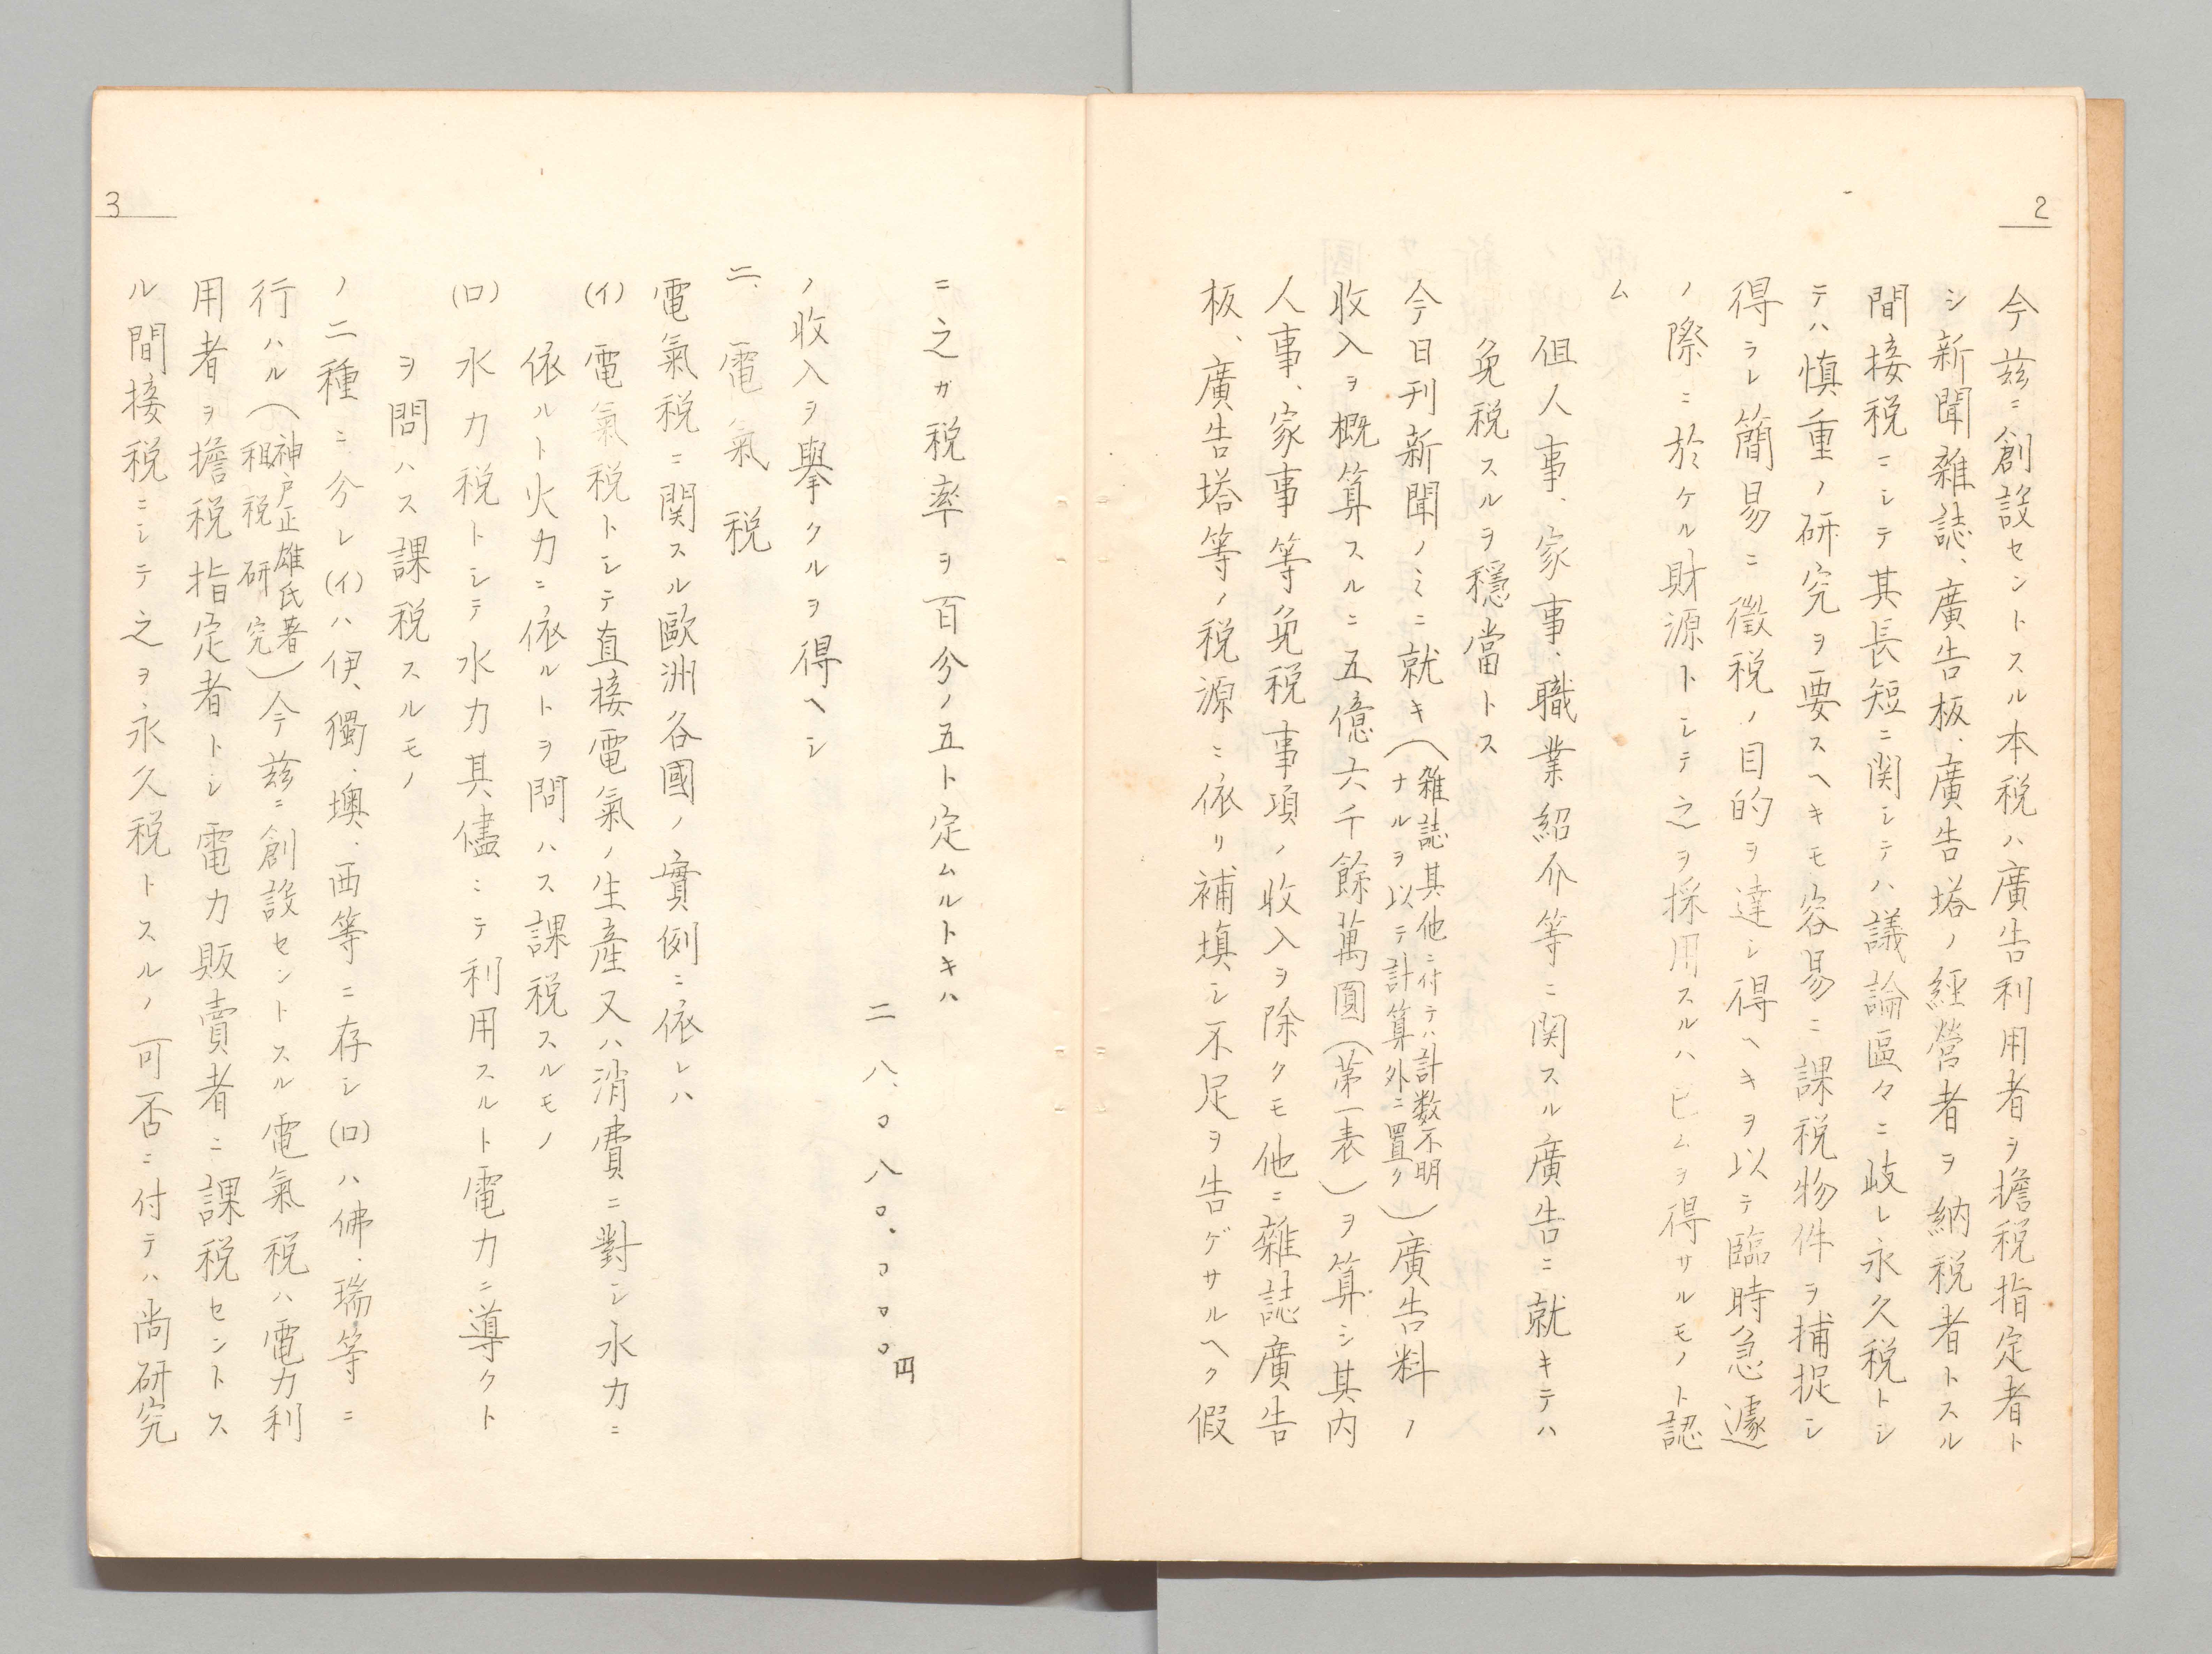 2
今茲ニ創設セントスル本税ハ廣告利用者ヲ擔税指定者ト
シ新聞雜誌、廣告板、廣告塔ノ經營者ヲ納税者トスル
間接税ニシテ其長短ニ関シテハ議論區々ニ岐レ永久税トシ
テハ慎重ノ研究ヲ要スヘキモ容易ニ課税物件ヲ捕捉シ
得ラレ簡易ニ徴税ノ目的ヲ達シ得ヘキヲ以テ臨時急遽
ノ際ニ於ケル財源トシテ之ヲ採用スルハ已ムヲ得サルモノト認
ム
但人事、家事、職業紹介等ニ関スル廣告ニ就キテハ
免税スルヲ穏當トス
今日刊新聞ノミニ就キ(雑誌其他ニ付テハ計数不明
ナルヲ以テ計算外ニ置ク)廣告料ノ
收入ヲ概算スルニ五億六千餘萬圓(第一表)ヲ算シ其内
人事、家事等免税事項ノ收入ヲ除クモ他ニ雜誌廣告
板、廣告塔等ノ税源ニ依リ補填シ不足ヲ告ゲサルヘク假
ニ之ガ税率ヲ百分ノ五ト定ムルトキハ
二八、〇八〇、〇〇〇円
ノ收入ヲ擧クルヲ得ヘシ
二、電氣税
電氣税ニ関スル歐洲各國ノ實例ニ依レハ
(イ)電氣税トシテ直接電氣ノ生産又ハ消費ニ對シ水力ニ
依ルト火力ニ依ルトヲ問ハス課税スルモノ
(ロ)水力税トシテ水力其儘ニテ利用スルト電力ニ導クト
ヲ問ハス課税スルモノ
ノ二種ニ分レ(イ)ハ伊、獨、墺、西等ニ存シ(ロ)ハ佛、瑞等ニ
行ハル(神戸正雄氏著
租税研究)今茲ニ創設セントスル電氣税ハ電力利
用者ヲ擔税指定者トシ電力販賣者ニ課税セントス
ル間接税ニシテ之ヲ永久税トスルノ可否ニ付テハ尚研究
3